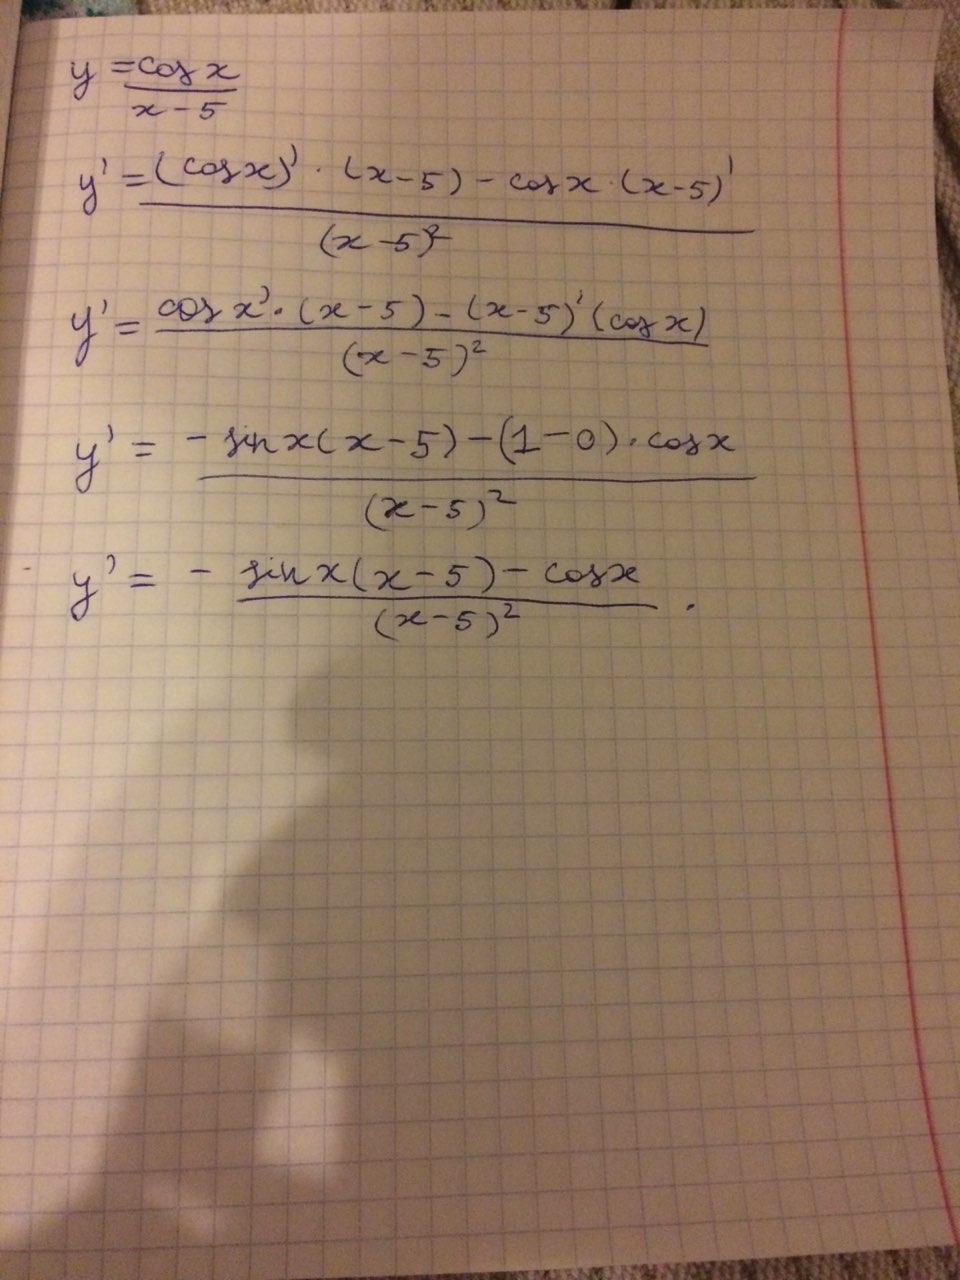 y = cos x / x - 5
y' = (cos x)' · (x - 5) - cos x · (x - 5)' / (x - 5)²
y' = cos x' · (x - 5) - (x - 5)' (cos x) / (x - 5)²
y' = - sin x (x - 5) - (1 - 0) · cos x / (x - 5)²
y' = - sin x (x - 5) - cos x / (x - 5)² .